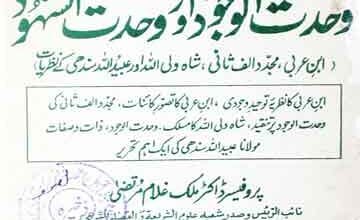 وحدت الوجود اور وحدت الشہود
(ابن عربی، مجدد الف ثانی، شاہ ولی اللہ اور عبید اللہ سندھی کے نظریات)
ابن عربی کا نظریۂ توحید وجودی، ابن عربی کا تصور کائنات، مجدد الف ثانی کی
وحدت الوجود پر تنقید، شاہ ولی اللہ کا مسلک۔ وحدت الوجود، ذات و صفات
مولانا عبید اللہ سندھی کی ایک اہم تحریر
پروفیسر ڈاکٹر ملک غلام مرتضیٰ
نائب الرئیس و صدر شعبہ علوم الشریعۃ